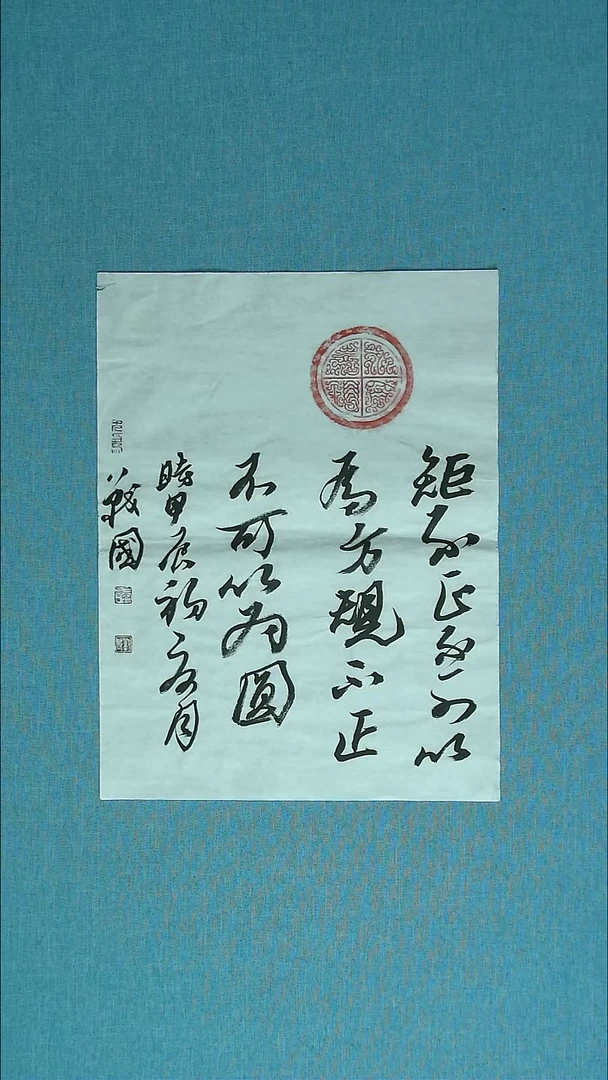 矩不正不可以
為方規不正
不可以为圓
時甲辰初夏月
國